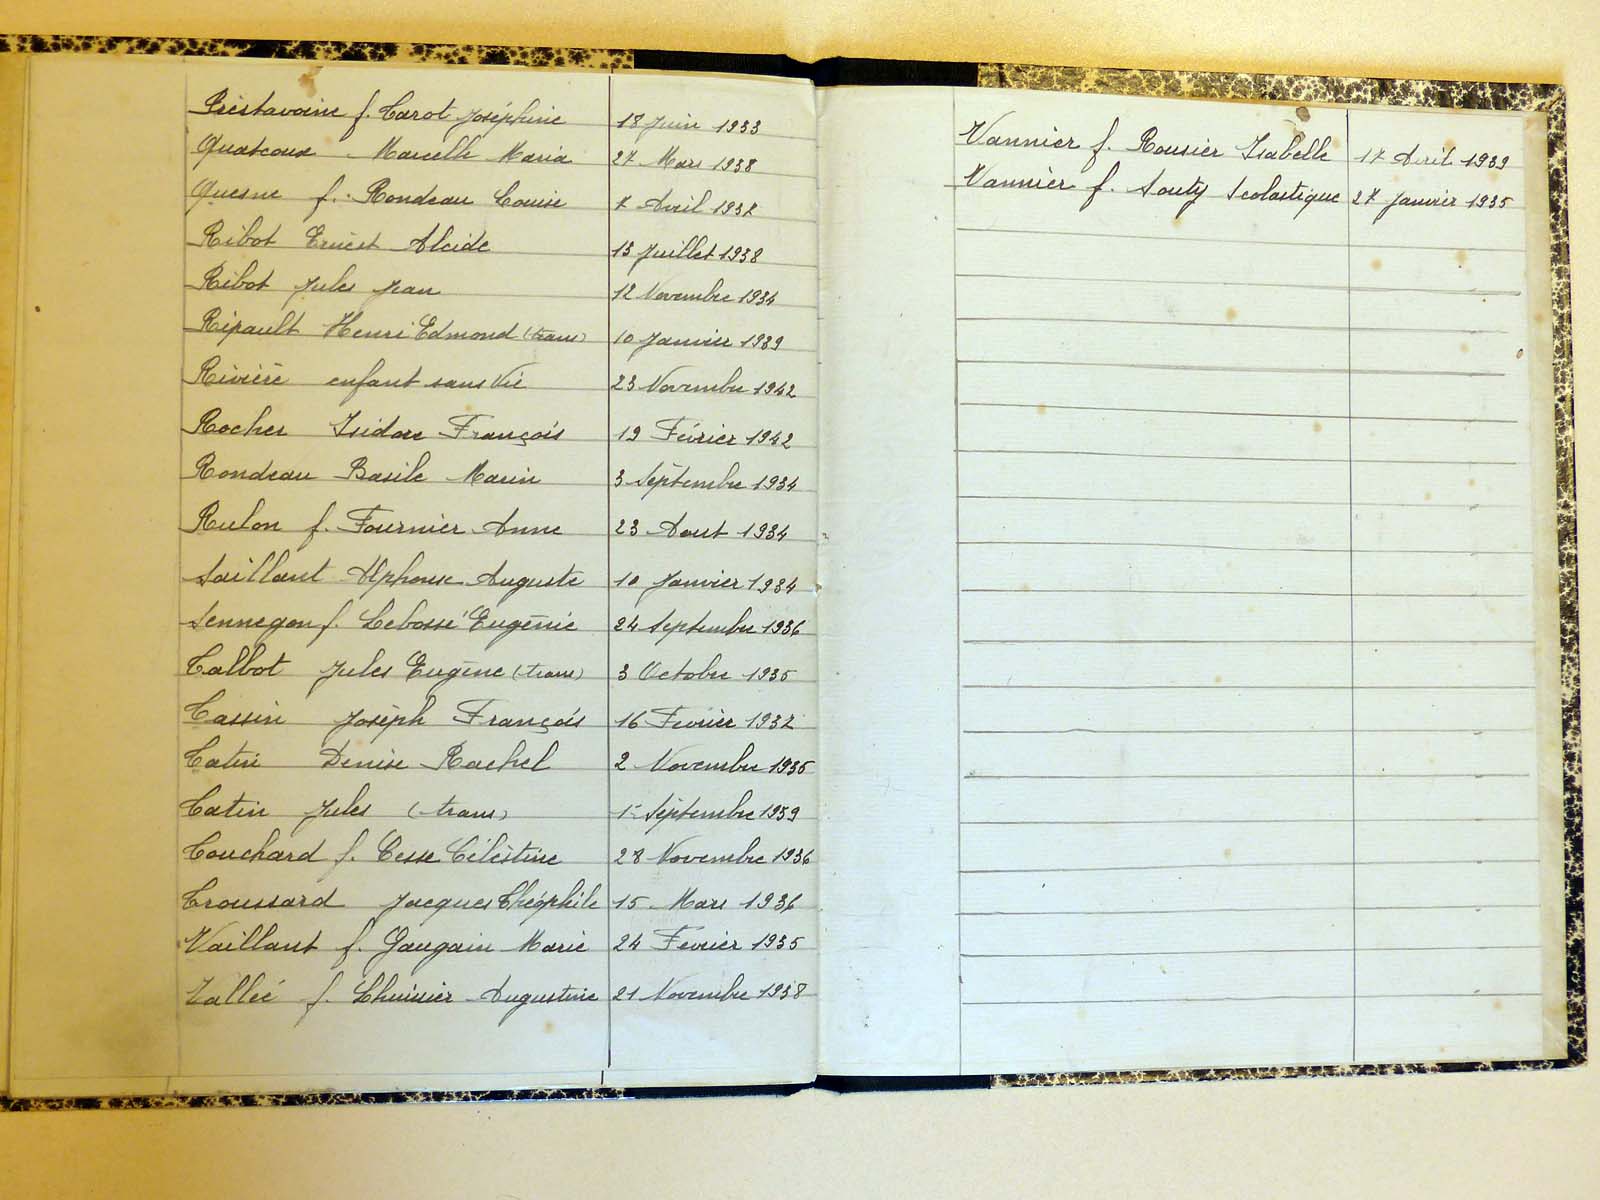 Préstavoine f. Carot Joséphine 18 Juin 1933
Quatcoux Marcelle Maria 27 Mars 1938
Quesne f. Rondeau Louise 7 Avril 1937
Ribot Ernest Alcide 13 Juillet 1938
Ribot Jules Jean 12 Novembre 1934
Ripault Henri Edmond (trans) 10 Janvier 1939
Rivière enfant sans Vie 23 Novembre 1942
Rocher Isidore François 19 Février 1942
Rondeau Basile Marin 3 Septembre 1934
Rulon f. Fournier Anne 23 Aout 1934
Saillant Alphonse Auguste 10 Janvier 1934
Sennegon f. Lebossé Eugénie 24 Septembre 1936
Talbot Jules Eugène (trans) 3 Octobre 1935
Tassin Joseph François 16 Fevrier 1937
Tatin Denise Rachel 2 Novembre 1935
Tatin Jules (trans) 1er Septembre 1939
Touchard f. Tesse Célèstine 28 Novembre 1936
Troussard Jacques Théophile 15 Mars 1936
Vaillant f. Gaugain Marie 24 Fevrier 1935
Vallée f. Lhuissier Augustine 21 Novembre 1938
Vannier f. Rousier Isabelle 17 Avril 1939
Vannier f. Souty Scolastique 27 Janvier 1935